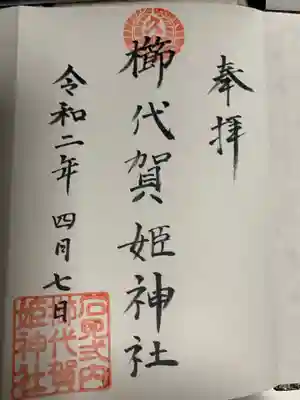 奉拝
久
櫛代賀姫神社
令和二年 四月七日
式内
櫛代賀
姫神社